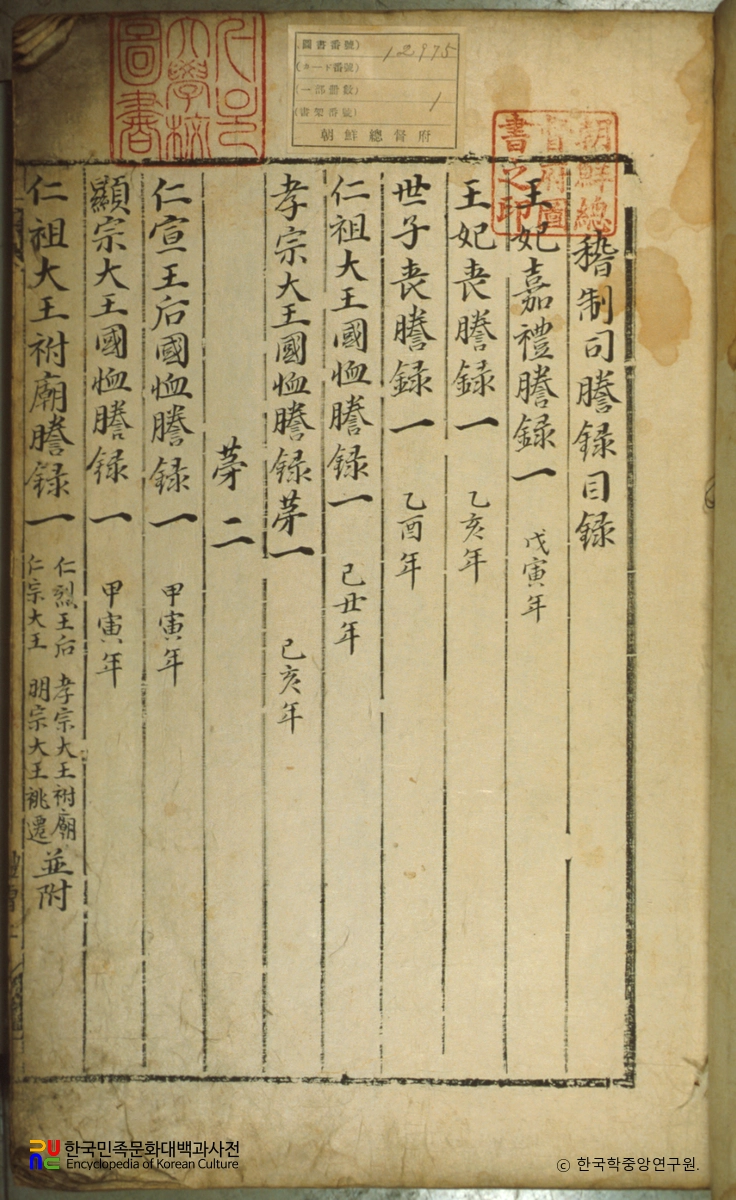 稽制司謄録目録
王妃嘉禮謄録一 戊寅年
王妃喪謄録一 乙亥年
世子喪謄録一 乙酉年
仁祖大王國恤謄録一 己丑年
孝宗大王國恤謄録苐一 己亥年
苐二
仁宣王后國恤謄録一 甲寅年
顯宗大王國恤謄録一 甲寅年
仁祖大王祔廟謄録一 仁烈王后 孝宗大王祔廟
仁宗大王 明宗大王祧遷 並附
圖書番號) 12975
(カード番號)
(一部冊數) 1
(書架番號)
朝鮮總督府
朝鮮總
督府圖
書之印
大學校
圖書
한국민족문화대백과사전
Encyclopedia of Korean Culture
© 한국학중앙연구원.